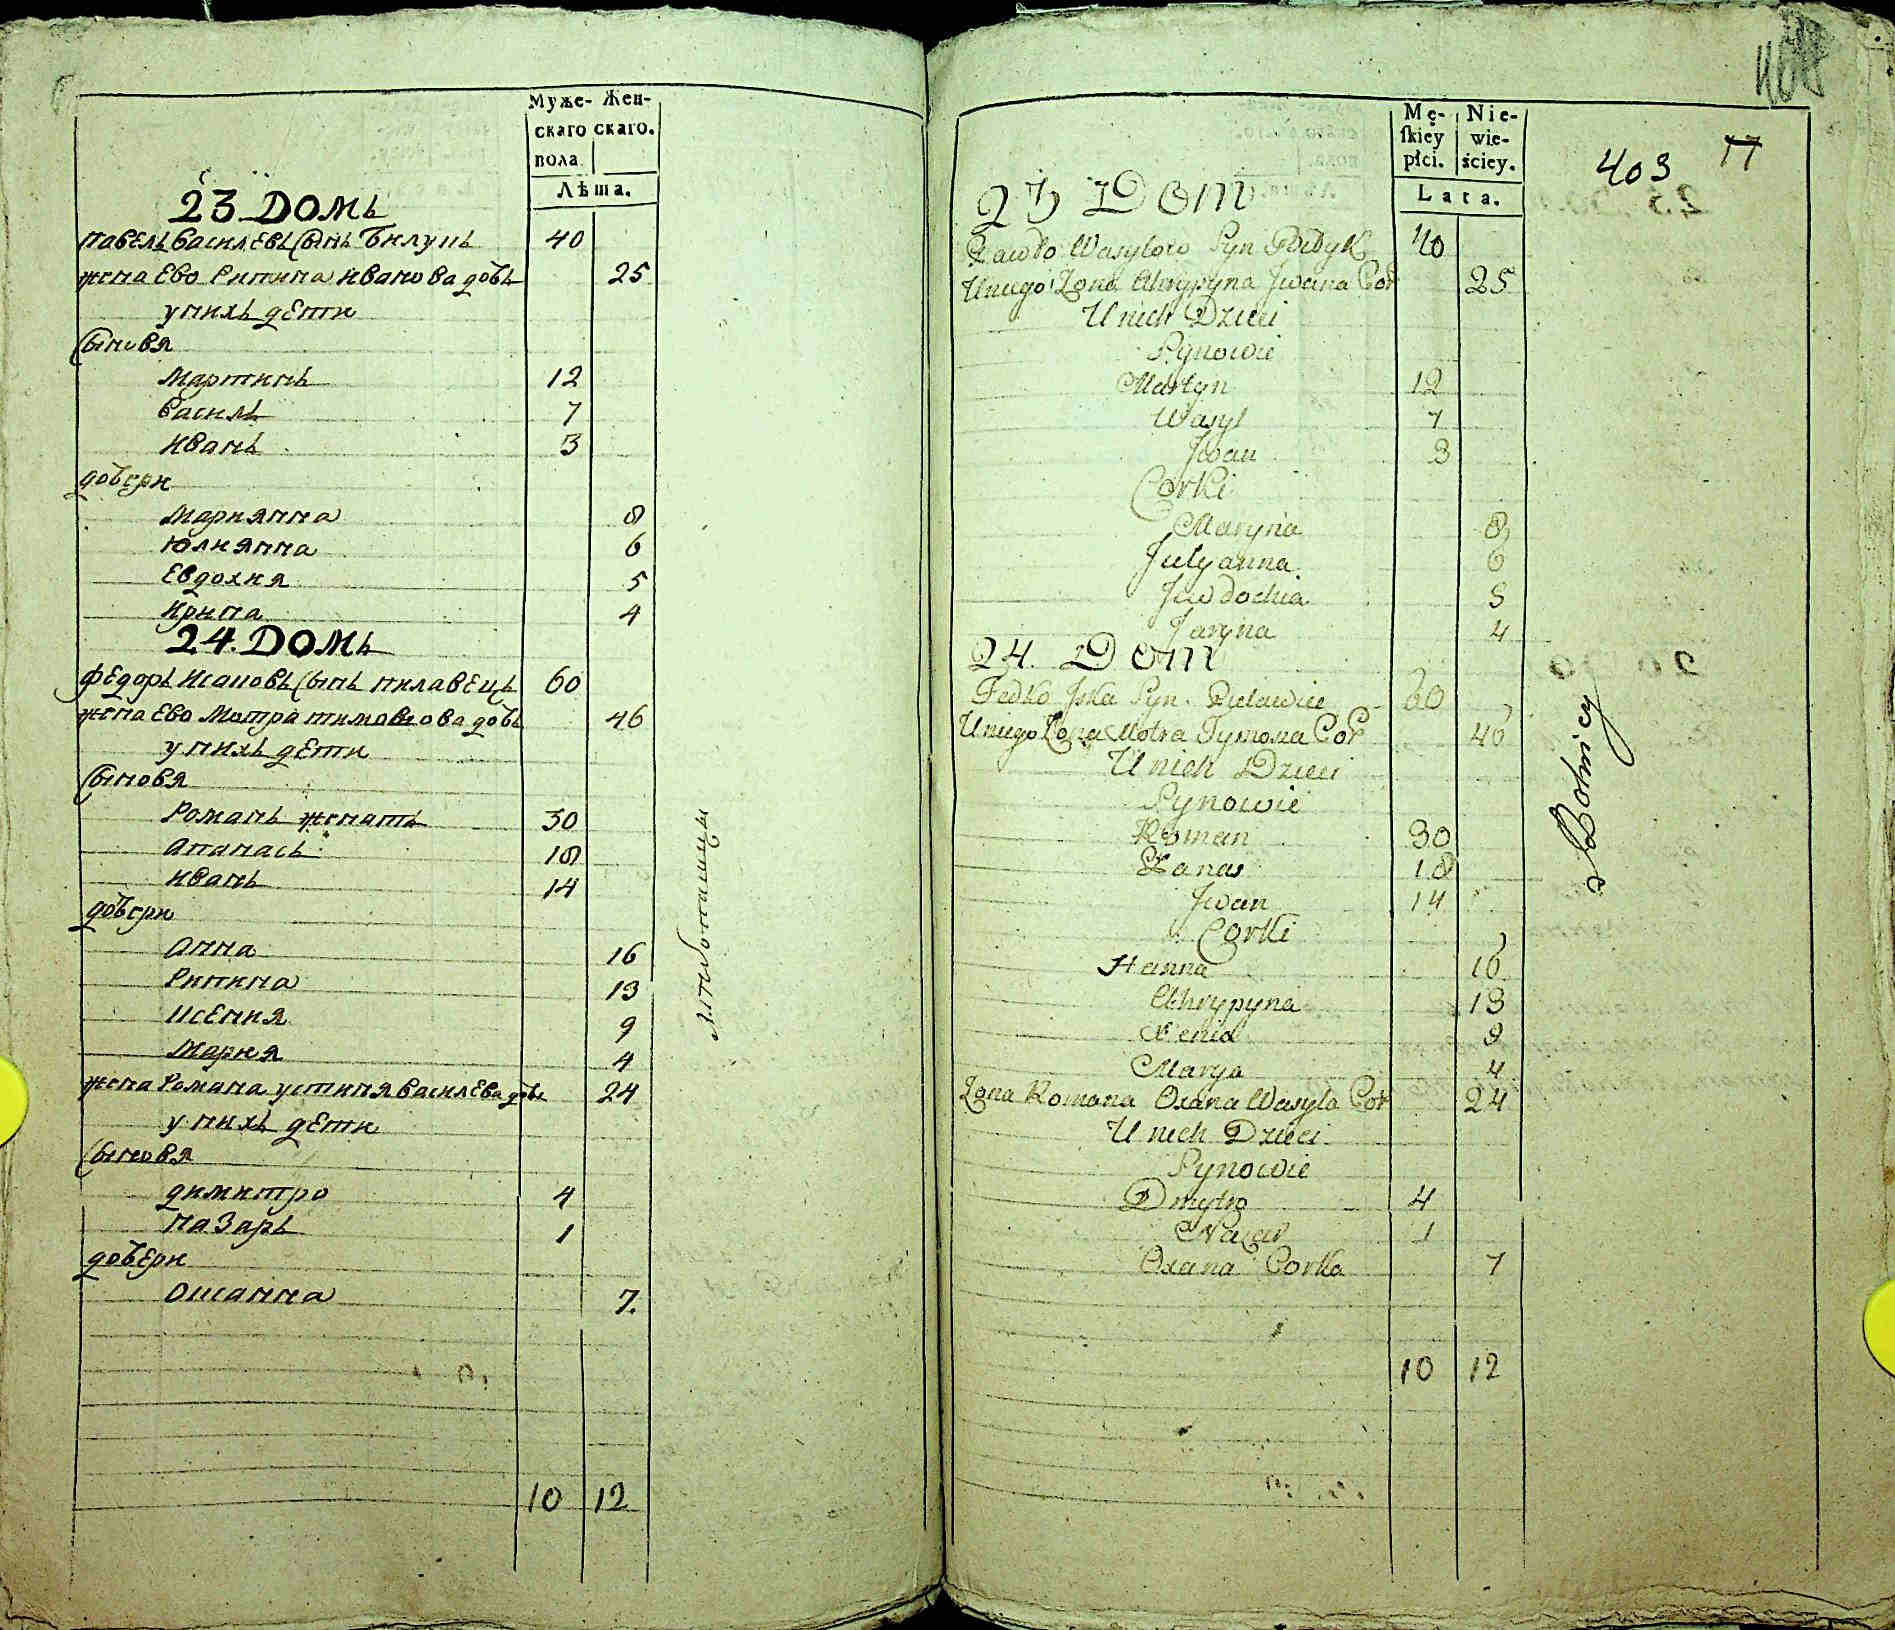 Муже- Жен-
скаго скаго.
пола
Лѣта.
23 Домъ
Павелъ Василевъ сынъ 40
жена Ево Рипина Иванова дочь 25
у нихъ дети
сыновя
Мартинъ 12
Василь 7
Иванъ 3
дочери
Мариянна 8
Юлиянна 6
Евдохия 5
Ирина 4
24. Домъ
Федоръ Исаковъ сынъ Пилавецъ 60
жена Ево Мотра Тимошова дочь 46
у нихъ дети
сыновя
Романъ женатъ 30
Апанасъ 18
Иванъ 14
дочери
Анна 16
Рипина 13
Ксения 9
Мария 4
жена Романа Устиня Василева дочь 24
у нихъ дети
сыновя
Димитро 4
Назаръ 1
дочери
Оксанна 7.
10 12
Mę- Nie-
skiey wie-
płci. ściey.
Lata.
403 17
23 Dom
Pawło Wasylow Syn 40
U niego Żona Ahrypyna Jwana Cor 25
U nich Dzieci
Synowie
Martyn 12
Wasyl 7
Jwan 3
Corki
Maryna 8
Julyanna 6
Jewdochia 5
Jaryna 4
24. Dom
Fedko Jska Syn Pilawiec 60
U niego Żona Motra Tymosza Cor 46
U nich Dzieci
Synowie
Roman 30
Panas 18
Jwan 14
Corki
Hanna 16
Ahrypyna 13
Xenia 9
Marya 4
Żona Romana Oxana Wasyla Cor 24
U nich Dzieci
Synowie
Dmytro 4
Nazar 1
Oxana Corka 7
10 12